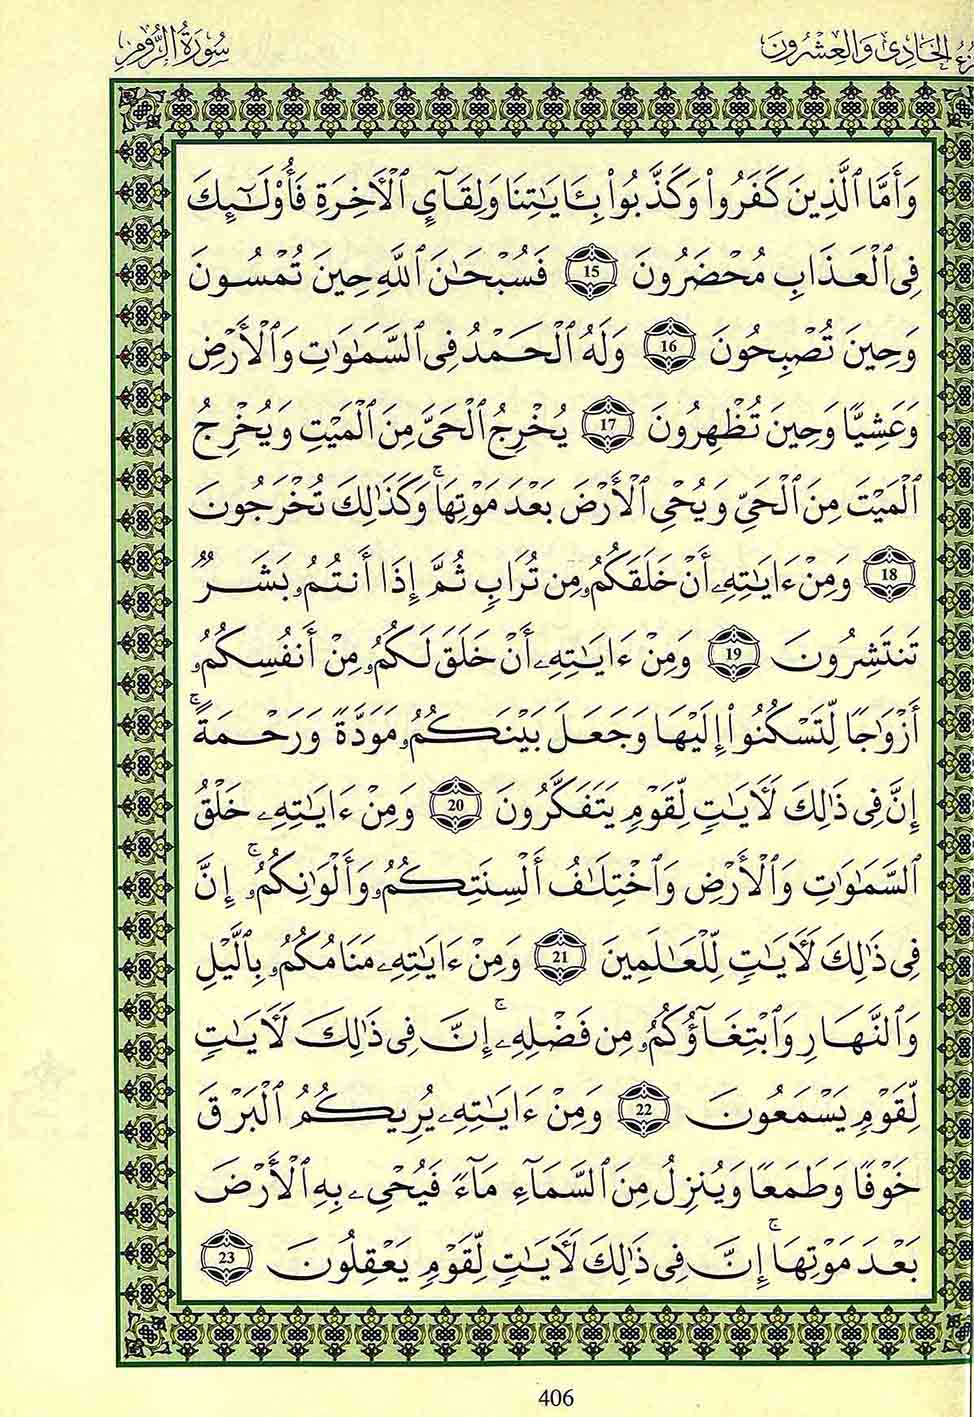 الحَادِى وَالعِشْرُونَ
سُورَةُ الرُّومِ
وَأَمَّا ٱلَّذِينَ كَفَرُواْ وَكَذَّبُواْ بِـَٔايَٰتِنَا وَلِقَآيِٕ ٱلْأَخِرَةِ فَأُوْلَٰٓئِكَ
فِى ٱلْعَذَابِ مُحْضَرُونَ 15 فَسُبْحَٰنَ ٱللَّهِ حِينَ تُمْسُونَ
وَحِينَ تُصْبِحُونَ 16 وَلَهُ ٱلْحَمْدُ فِى ٱلسَّمَٰوَٰتِ وَٱلْأَرْضِ
وَعَشِيًّا وَحِينَ تُظْهِرُونَ 17 يُخْرِجُ ٱلْحَىَّ مِنَ ٱلْمَيْتِ وَيُخْرِجُ
ٱلْمَيْتَ مِنَ ٱلْحَىِّ وَيُحْىِ ٱلْأَرْضَ بَعْدَ مَوْتِهَاۚ وَكَذَٰلِكَ تُخْرَجُونَ
18 وَمِنْ ءَايَٰتِهِۦ أَنْ خَلَقَكُمُۥ مِن تُرَابٍ ثُمَّ إِذَا أَنتُمُۥ بَشَرٌ
تَنتَشِرُونَ 19 وَمِنْ ءَايَٰتِهِۦ أَنْ خَلَقَ لَكُمُۥ مِنْ أَنفُسِكُمُۥ
أَزْوَٰجًا لِّتَسْكُنُواْ إِلَيْهَا وَجَعَلَ بَيْنَكُمُۥ مَوَدَّةً وَرَحْمَةًۚ
إِنَّ فِى ذَٰلِكَ لَأَيَٰتٍ لِّقَوْمٍ يَتَفَكَّرُونَ 20 وَمِنْ ءَايَٰتِهِۦ خَلْقُ
ٱلسَّمَٰوَٰتِ وَٱلْأَرْضِ وَٱخْتِلَٰفُ أَلْسِنَتِكُمُۥ وَأَلْوَٰنِكُمُۥۚ إِنَّ
فِى ذَٰلِكَ لَأَيَٰتٍ لِّلْعَٰلَمِينَ 21 وَمِنْ ءَايَٰتِهِۦ مَنَامُكُمُۥ بِٱلَّيْلِ
وَٱلنَّهَارِ وَٱبْتِغَآؤُكُمُۥ مِن فَضْلِهِۦۚ إِنَّ فِى ذَٰلِكَ لَأَيَٰتٍ
لِّقَوْمٍ يَسْمَعُونَ 22 وَمِنْ ءَايَٰتِهِۦ يُرِيكُمُ ٱلْبَرْقَ
خَوْفًا وَطَمَعًا وَيُنزِلُ مِنَ ٱلسَّمَآءِ مَآءً فَيُحْىِۦ بِهِ ٱلْأَرْضَ
بَعْدَ مَوْتِهَاۚ إِنَّ فِى ذَٰلِكَ لَأَيَٰتٍ لِّقَوْمٍ يَعْقِلُونَ 23
406